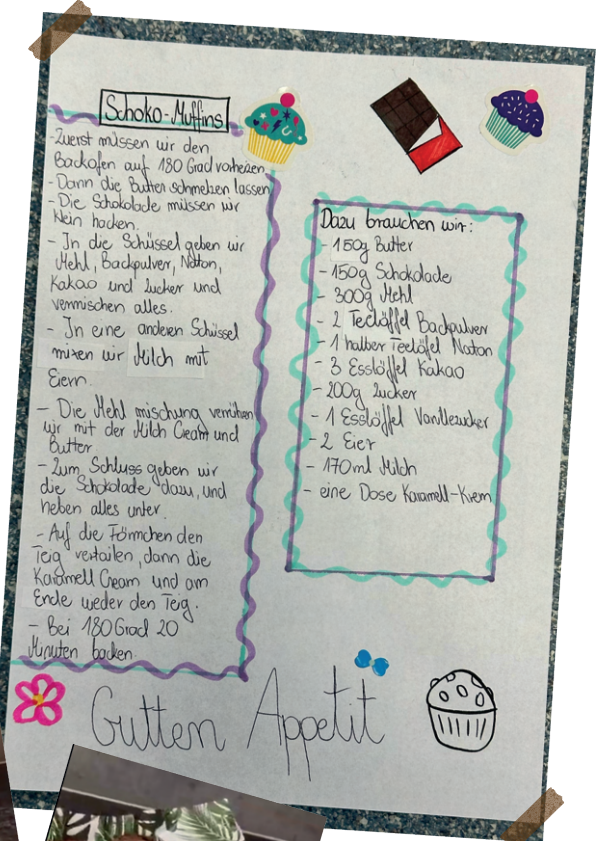 Schoko-Muffins
-Zuerst müssen wir den
Backofen auf 180 Grad vorheizen
-Dann die Butter schmelzen lassen
-Die Schokolade müssen wir
klein hacken.
- In die Schüssel geben wir
Mehl, Backpulver, Natron,
Kakao und Zucker und
vermischen alles.
- In eine anderen Schüssel
mixen wir Milch mit
Eiern.
- Die Mehl mischung verrühen
wir mit der Milch Cream und
Butter
- Zum Schluss geben wir
die Schokolade dazu, und
heben alles unter.
- Auf die Förmchen den
Teig vertailen, dann die
Karamell Cream und am
Ende weder den Teig.
- Bei 180 Grad 20
Minuten backen.
Dazu brauchen wir:
- 150g Butter
- 150g Schokolade
- 300g Mehl
- 2 Teelöffel Backpulver
- 1 halber Teelöfel Naton
- 3 Esslöffel Kakao
- 200g Zucker
- 1 Esslöffel Vanillezucker
- 2 Eier
- 170ml Milch
- eine Dose Karamell-Krem
Gutten Appetit